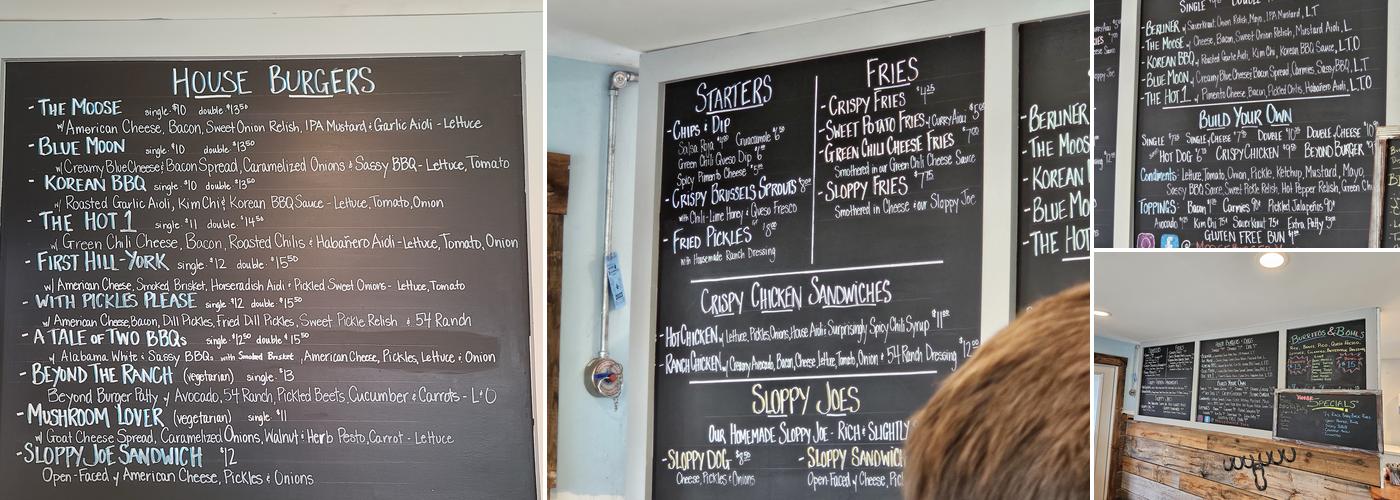 HOUSE BURGERS
- THE MOOSE single $10 double $13.50
w/ American Cheese, Bacon, Sweet Onion Relish, IPA Mustard & Garlic Aioli - Lettuce
- BLUE MOON single $10 double $13.50
w/ Creamy Blue Cheese & Bacon Spread, Caramelized Onions & Sassy BBQ - Lettuce, Tomato
- KOREAN BBQ single $10 double $13.50
w/ Roasted Garlic Aioli, Kim Chi & Korean BBQ Sauce - Lettuce, Tomato, Onion
- THE HOT 1 single $11 double $14.50
w/ Green Chili Cheese, Bacon, Roasted Chilis & Habañero Aioli - Lettuce, Tomato, Onion
- FIRST HILL-YORK single $12 double $15.50
w/ American Cheese, Smoked Brisket, Horseradish Aioli & Pickled Sweet Onions - Lettuce, Tomato
- WITH PICKLES PLEASE single $12 double $15.50
w/ American Cheese, Bacon, Dill Pickles, Fried Dill Pickles, Sweet Pickle Relish & 54 Ranch
- A TALE OF TWO BBQs single $12.50 double $15.50
w/ Alabama White & Sassy BBQs with Smoked Brisket, American Cheese, Pickles, Lettuce & Onion
- BEYOND THE RANCH (vegetarian) single $13
Beyond Burger Patty w/ Avocado, 54 Ranch, Pickled Beets, Cucumber & Carrots - L & O
- MUSHROOM LOVER (vegetarian) single $11
w/ Goat Cheese Spread, Caramelized Onions, Walnut & Herb Pesto, Carrot - Lettuce
- SLOPPY JOE SANDWICH $12
Open-Faced w/ American Cheese, Pickles & Onions
STARTERS
- CHIPS & DIP
Salsa Roja Guacamole
Green Chili Queso Dip
Spicy Pimento Cheese
- CRISPY BRUSSELS SPROUTS
with Chili-Lime Honey & Queso Fresco
- FRIED PICKLES
with Housemade Ranch Dressing
FRIES
- CRISPY FRIES $4.25
- SWEET POTATO FRIES w/ Curry Aioli
- GREEN CHILI CHEESE FRIES
Smothered in our Green Chili Cheese Sauce
- SLOPPY FRIES $7.75
Smothered in Cheese & our Sloppy Joe
CRISPY CHICKEN SANDWICHES
- HOT CHICKEN w/ Lettuce, Pickles, Onions, House Aioli & Surprisingly Spicy Chili Syrup
- RANCH CHICKEN w/ Creamy Avocado, Bacon, Cheese, Lettuce, Tomato, Onion & 54 Ranch Dressing
SLOPPY JOES
OUR HOMEMADE SLOPPY JOE - RICH & SLIGHTLY
- SLOPPY DOG $8.50
Cheese, Pickles & Onions
- SLOPPY SANDWICH
Open-Faced w/ Cheese, Pic
- BERLINER
- THE MOOS
- KOREAN
- BLUE MO
- THE HOT
SINGLE DOUBLE
- BERLINER w/ Sauerkraut, Onion Relish, Mayo, IPA Mustard, L,T
- THE MOOSE w/ Cheese, Bacon, Sweet Onion Relish, Mustard, Aioli, L
- KOREAN BBQ w/ Roasted Garlic Aioli, Kim Chi, Korean BBQ Sauce, L,T,O
- BLUE MOON w/ Creamy Blue Cheese Bacon Spread, Cammies, Sassy BBQ, L,T
- THE HOT 1 w/ Pimento Cheese, Bacon, Pickled Chilis, Habañero Aioli, L,T,O
BUILD YOUR OWN
SINGLE SINGLE w/ CHEESE DOUBLE DOUBLE w/ CHEESE
HOT DOG CRISPY CHICKEN BEYOND BURGER
Condiments: Lettuce, Tomato, Onion, Pickle, Ketchup, Mustard, Mayo,
Sassy BBQ Sauce, Sweet Pickle Relish, Hot Pepper Relish, Green Ch
TOPPINGS: Bacon Cammies Pickled Jalapeños
Avocado Kim Chi Sauerkraut Extra Patty
GLUTEN FREE BUN
BURRITOS & BOWLS
SPECIALS